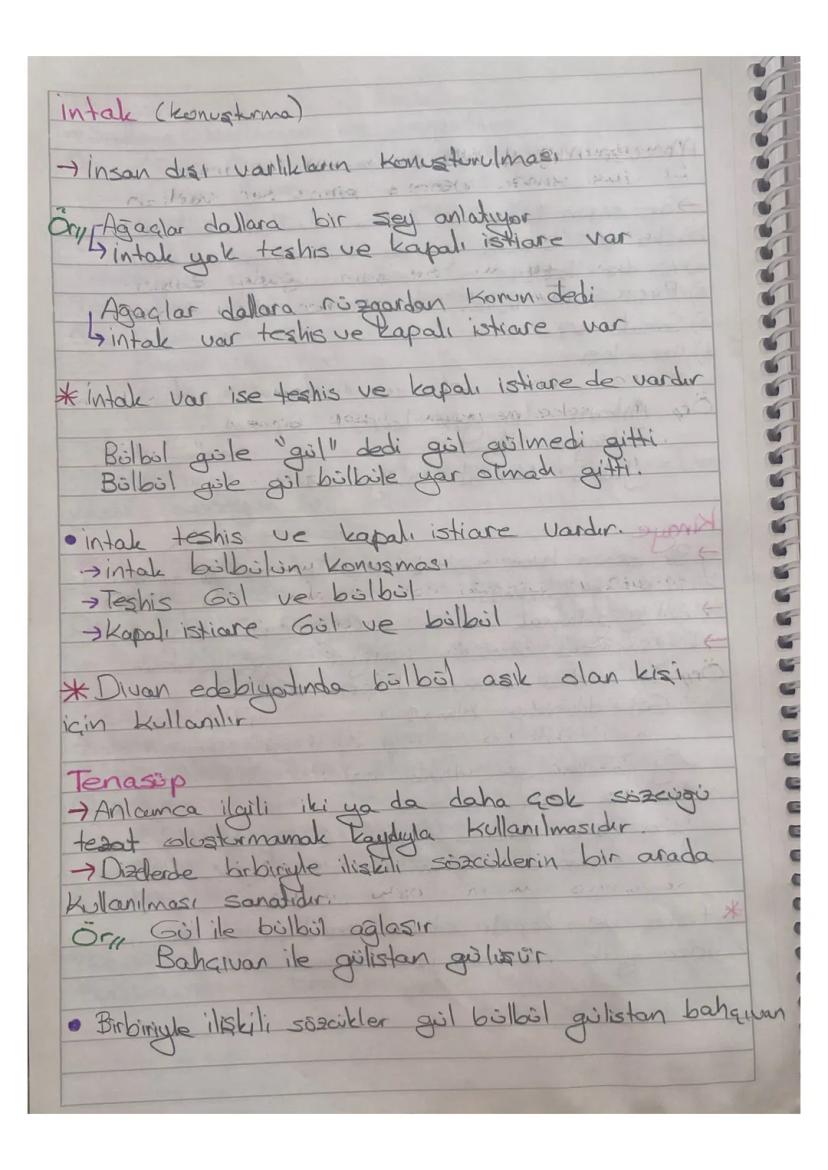 intak (konuşturma)
→ İnsan dışı varlıkların konuşturulması
Ör// Ağaçlar dallara bir şey anlatıyor
↳ intak yok teşhis ve kapalı istiare var
Ağaçlar dallara rüzgardan korun dedi
↳ intak var teşhis ve kapalı istiare var
* intak var ise teşhis ve kapalı istiare de vardır
Bülbül güle "gül" dedi gül gülmedi gitti
Bülbül güle gül bülbüle yar olmadı gitti.
• intak teşhis ve kapalı istiare vardır.
→ intak bülbülün konuşması
→ Teşhis Gül ve bülbül
→ Kapalı istiare Gül ve bülbül
* Divan edebiyatında bülbül aşık olan kişi
için kullanılır
Tenasüp
→ Anlamca ilgili iki ya da daha çok sözcüğü
tezat oluşturmamak kaydıyla kullanılmasıdır.
→ Dizelerde birbiriyle ilişkili sözcüklerin bir arada
kullanılması sanatıdır.
Ör// Gül ile bülbül ağlaşır
Bahçıvan ile gülistan gülüşür
• Birbiriyle ilişkili sözcükler gül bülbül gülistan bahçıvan